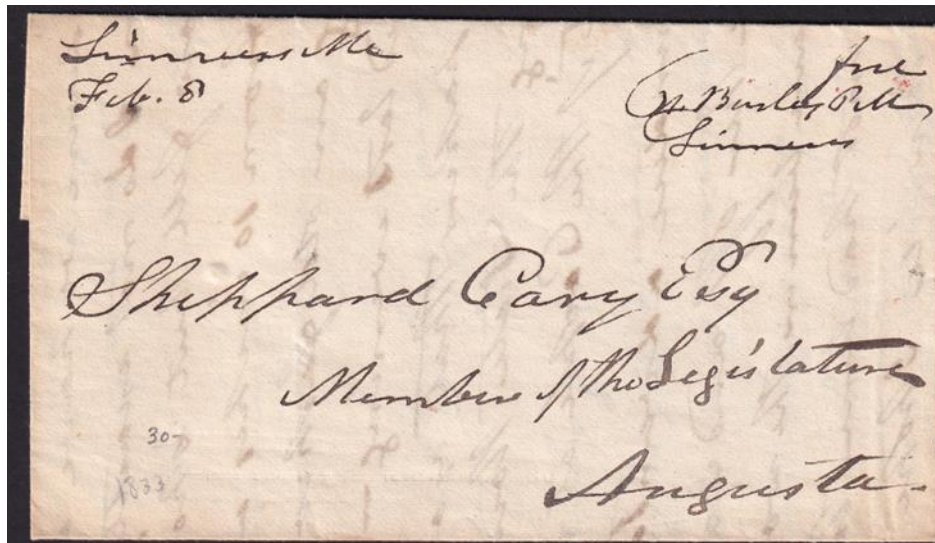 Linneus Me
Feb. 8
free
M. Burley PM
Linneus
Sheppard Cary Esq
Member of the Legislature
Augusta.
30-
1833